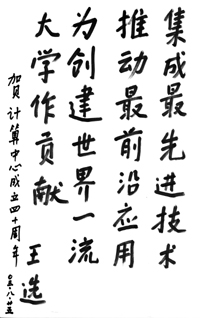 集成最先进技术
推动最前沿应用
为创建世界一流
大学作贡献
王选
贺计算中心成立四十周年
〇三·八·廿五